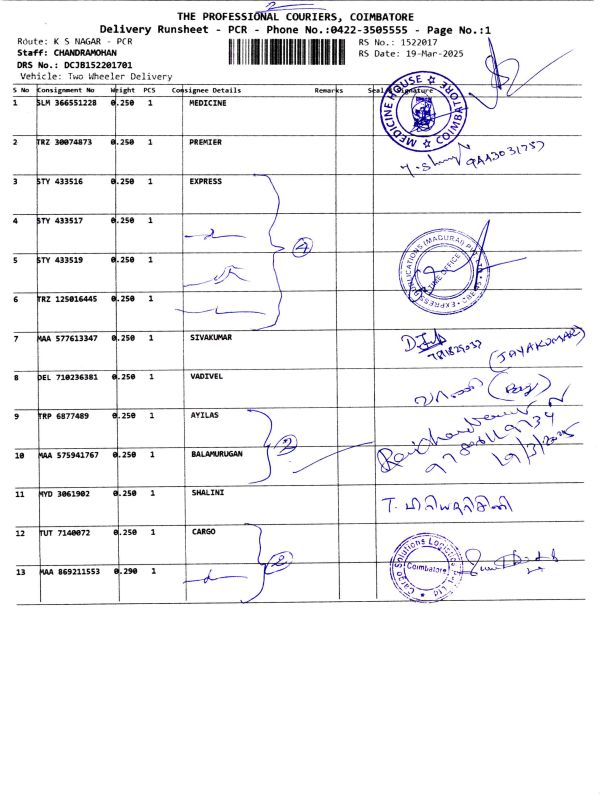 THE PROFESSIONAL COURIERS, COIMBATORE
Delivery Runsheet - PCR - Phone No.:0422-3505555 - Page No.:1
Route: K S NAGAR - PCR
RS No.: 1522017
Staff: CHANDRAMOHAN
RS Date: 19-Mar-2025
DRS No.: DCJB152201701
Vehicle: Two Wheeler Delivery
S No Consignment No Weight PCS Consignee Details Remarks Seal & Signature
1 SLM 366551228 0.250 1 MEDICINE
MEDICINE HOUSE COIMBATORE
2 TRZ 30074873 0.250 1 PREMIER
3 STY 433516 0.250 1 EXPRESS
4 STY 433517 0.250 1
4
5 STY 433519 0.250 1
EXPRESS PUBLICATIONS (MADURAI) PVT. LTD.
TIME OFFICE
6 TRZ 125016445 0.250 1
7 MAA 577613347 0.250 1 SIVAKUMAR
(JAYAKUMAR)
8 DEL 710236381 0.250 1 VADIVEL
9 TRP 6877489 0.250 1 AYILAS
2
19/3/2025
10 MAA 575941767 0.250 1 BALAMURUGAN
11 MYD 3061902 0.250 1 SHALINI
12 TUT 7140072 0.250 1 CARGO
2
Cargo Solutions Logistics
Coimbatore
13 MAA 869211553 0.290 1